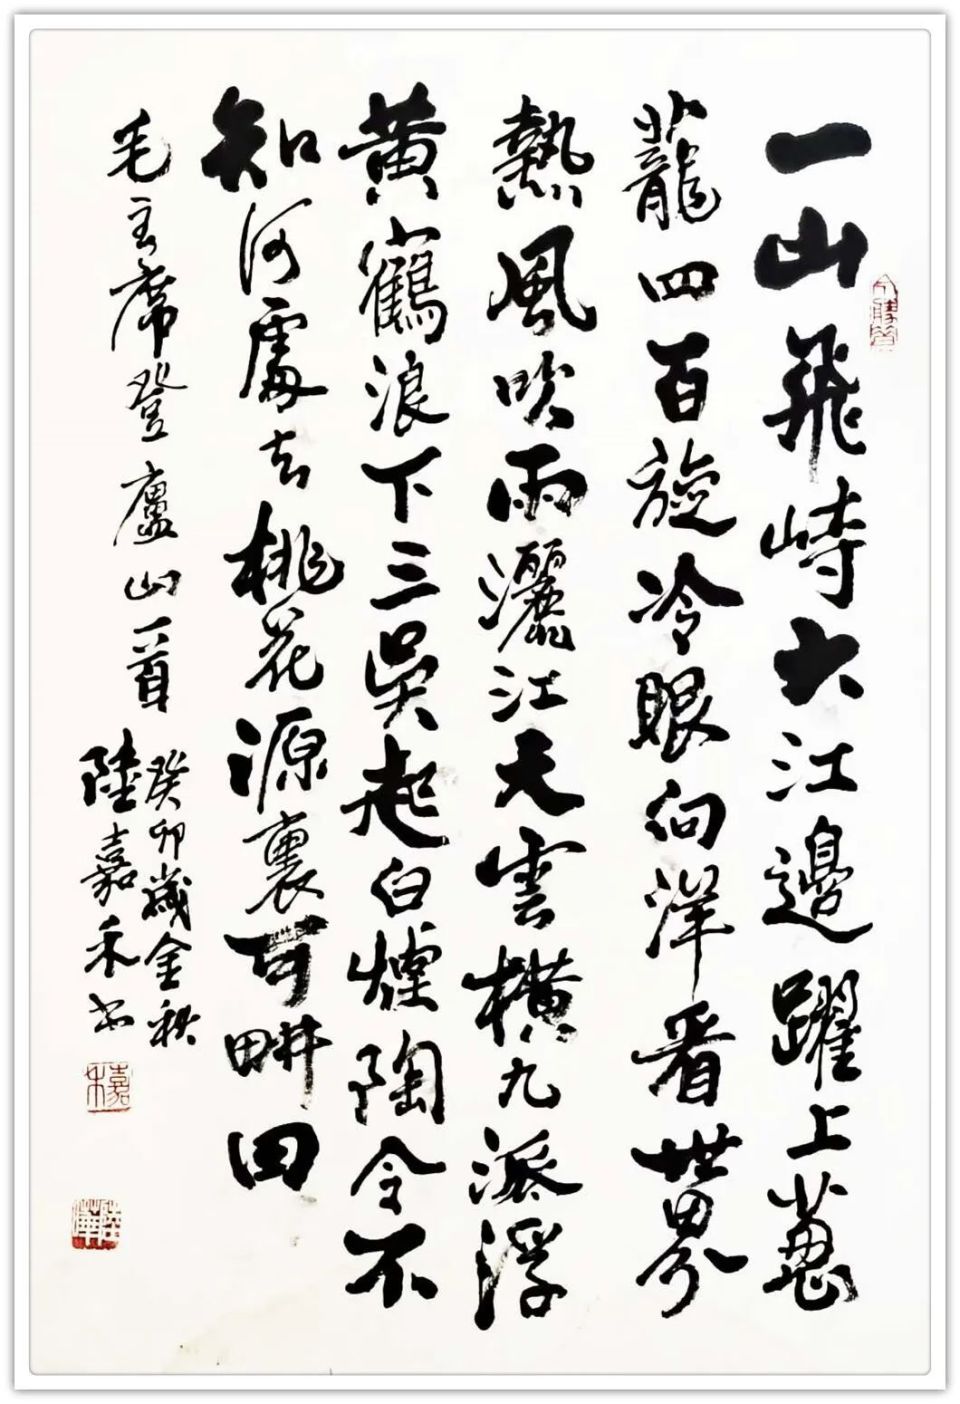 一山飛峙大江邊躍上蔥
蘢四百旋冷眼向洋看世界
熱風吹雨灑江天雲橫九派浮
黄鶴浪下三吳起白煙陶令不
知何處去桃花源裏可畊田
毛主席登廬山一首
癸卯歲金秋
陸嘉禾书
嘉禾